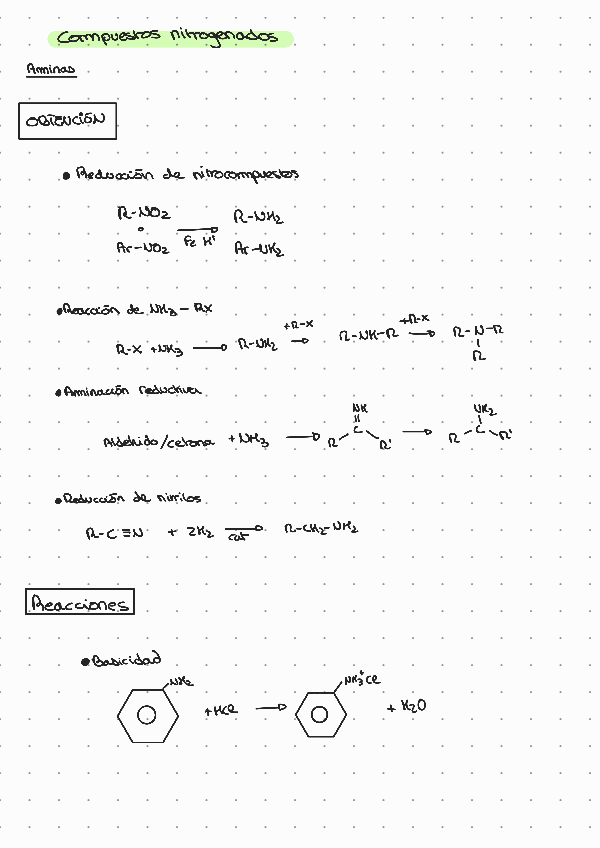 Compuestos nitrogenados
Aminas
OBTENCIÓN
• Reducción de nitrocompuestos
R-NO2 R-NH2
o Fe H+
Ar-NO2 Ar-NH2
• Reacción de NH3 - RX
R-X + NH3 → R-NH2 +R-X → R-NH-R +R-X → R-N-R
R
• Aminación reductiva
NH NH2
Aldehído/cetona + NH3 → R C R' → R C R'
• Reducción de nitrilos
R-C≡N + 2H2 cat → R-CH2-NH2
Reacciones
• Basicidad
NH2 NH3+ Cl
+HCl → + H2O